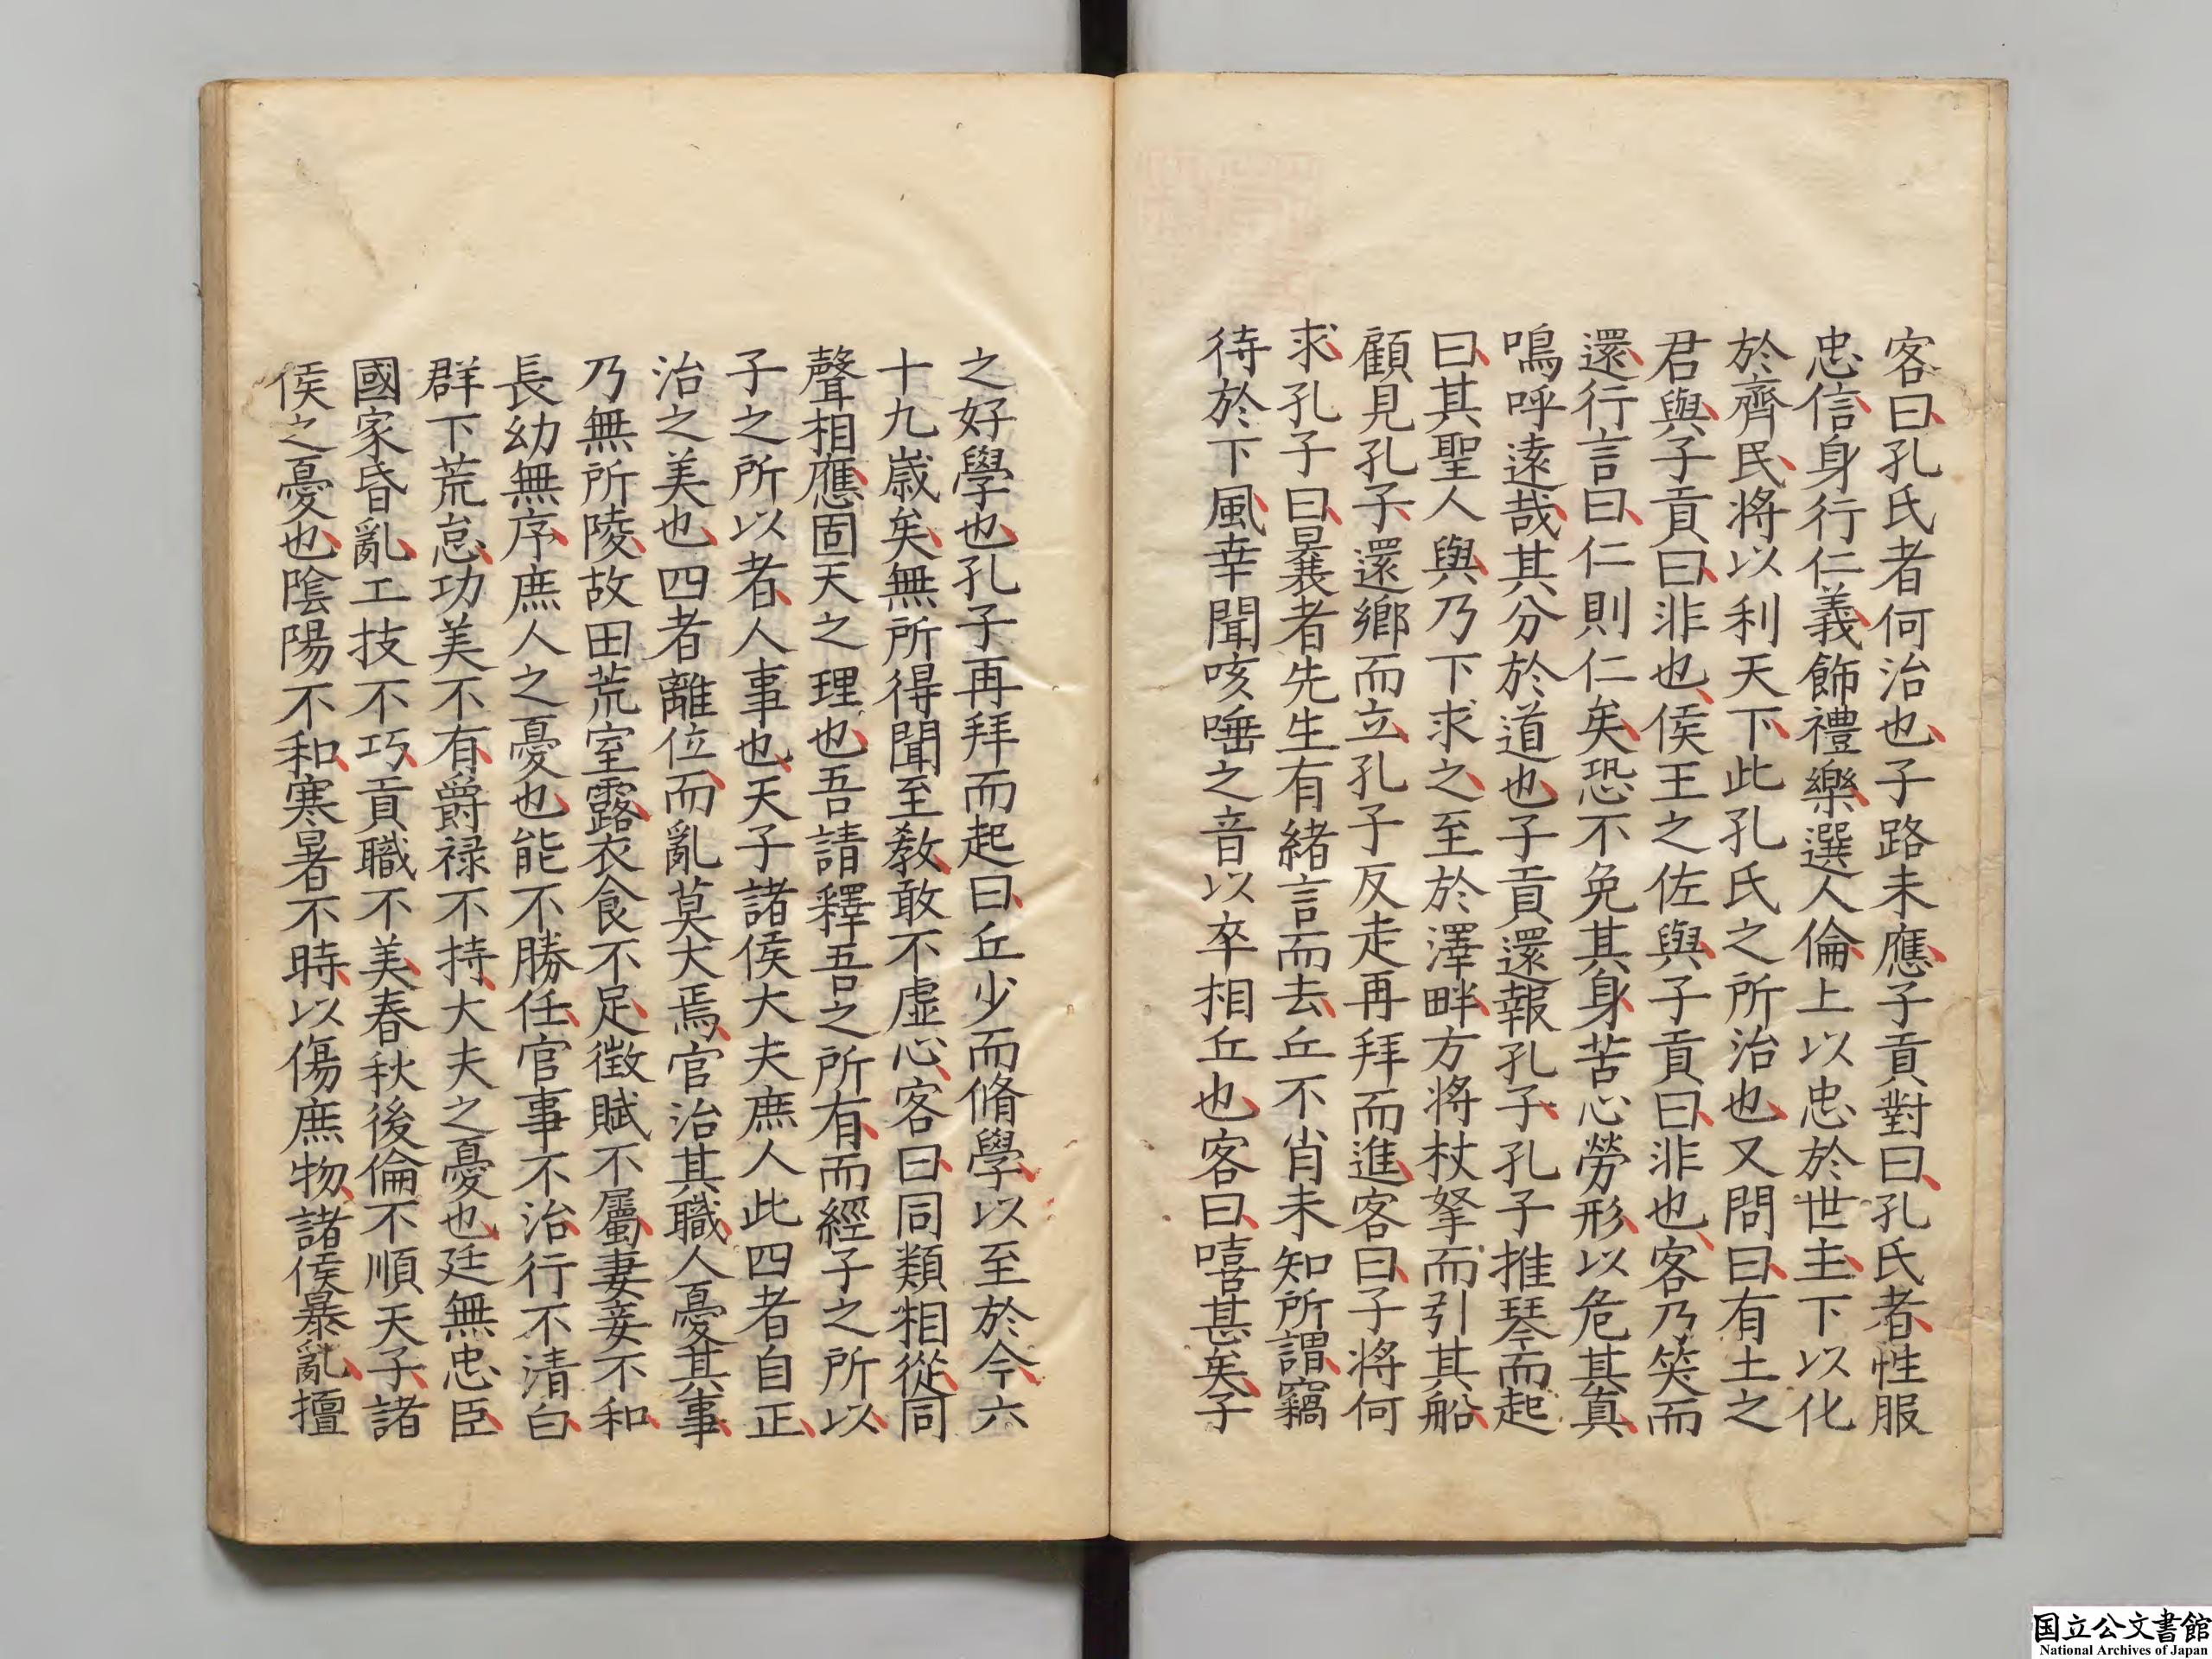 客曰孔氏者何治也子路未應子貢對曰孔氏者性服
忠信身行仁義飾禮樂選人倫上以忠於世主下以化
於齊民將以利天下此孔氏之所治也又問曰有土之
君與子貢曰非也侯王之佐與子貢曰非也客乃笑而
還行言曰仁則仁矣恐不免其身苦心勞形以危其真
嗚呼遠哉其分於道也子貢還報孔子孔子推琴而起
曰其聖人與乃下求之至於澤畔方將杖拏而引其船
顧見孔子還鄉而立孔子反走再拜而進客曰子將何
求孔子曰曩者先生有緒言而去丘不肖未知所謂竊
待於下風幸聞咳唾之音以卒相丘也客曰嘻甚矣子
之好學也孔子再拜而起曰丘少而脩學以至於今六
十九歲矣無所得聞至教敢不虛心客曰同類相從同
聲相應固天之理也吾請釋吾之所有而經子之所以
子之所以者人事也天子諸侯大夫庶人此四者自正
治之美也四者離位而亂莫大焉官治其職人憂其事
乃無所陵故田荒室露衣食不足徵賦不屬妻妾不和
長幼無序庶人之憂也能不勝任官事不治行不清白
群下荒怠功美不有爵禄不持大夫之憂也廷無忠臣
國家昏亂工技不巧貢職不美春秋後倫不順天子諸
侯之憂也陰陽不和寒暑不時以傷庶物諸侯暴亂擅
国立公文書館
National Archives of Japan